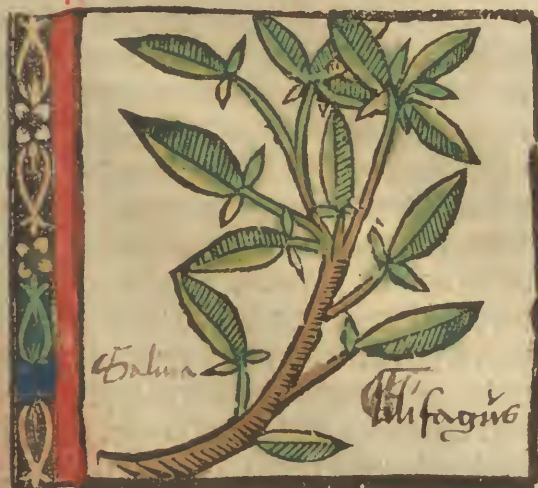 Salvia
lilifagus